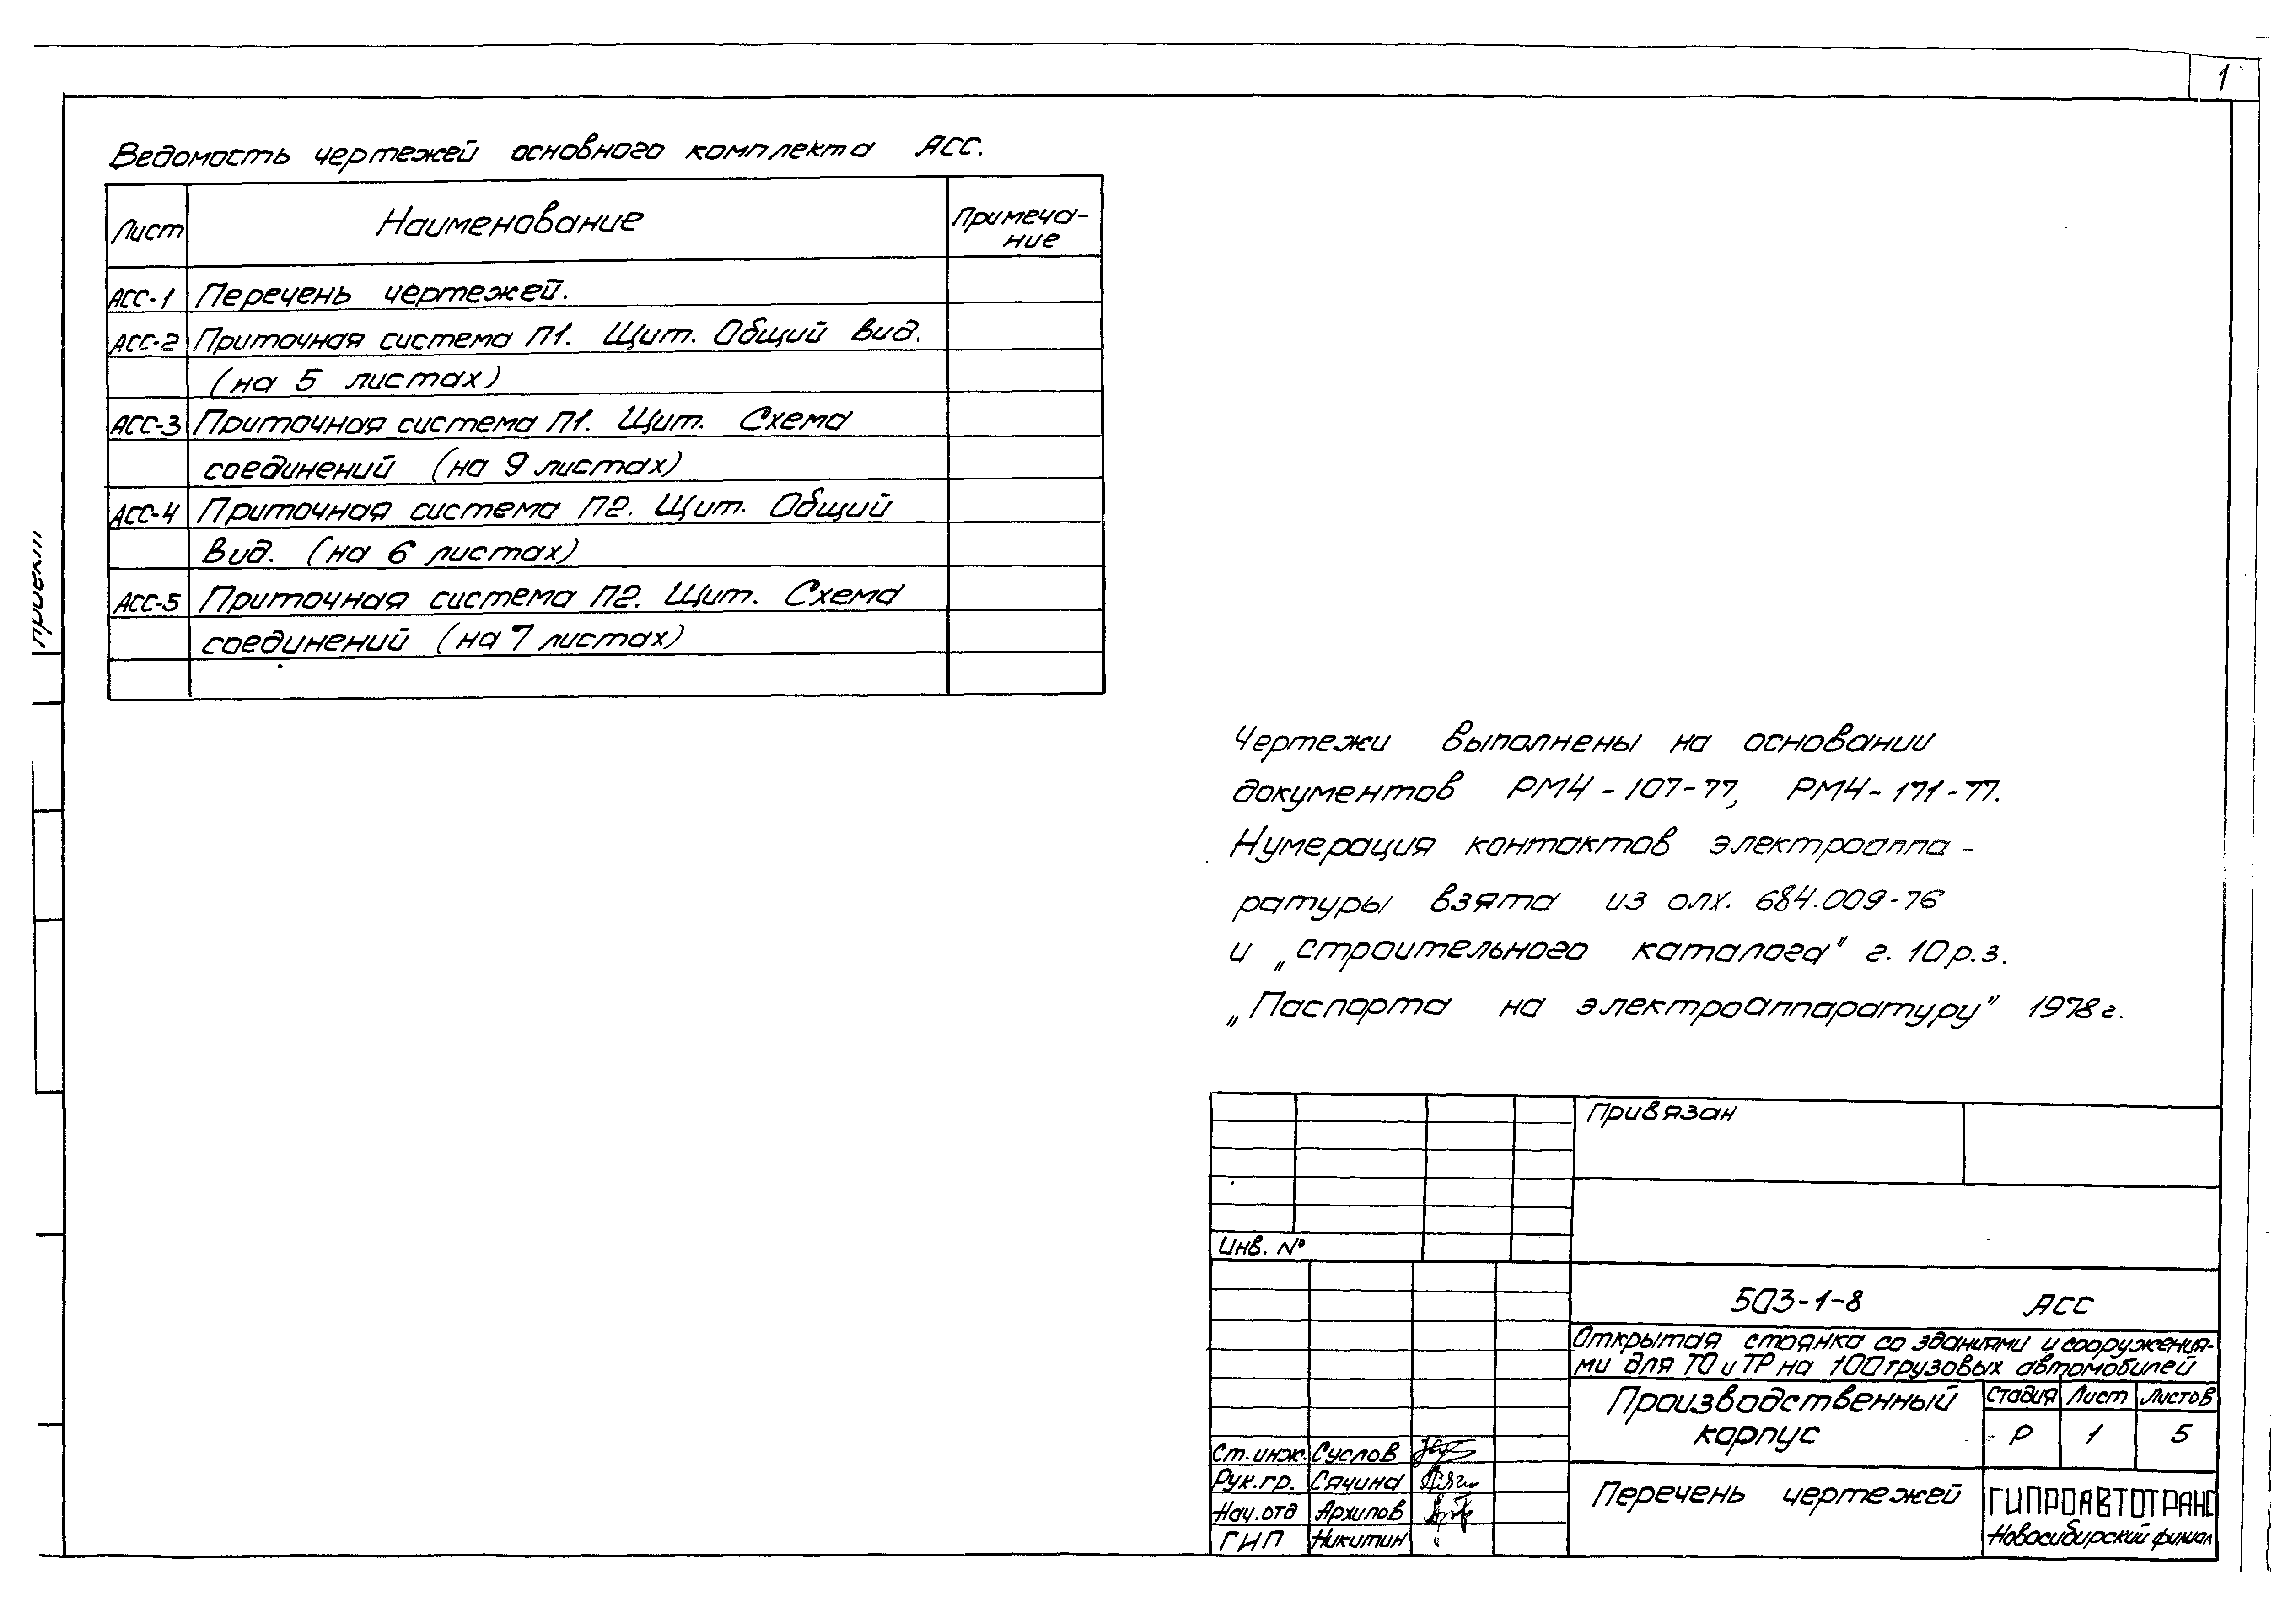 1
Ведомость чертежей основного комплекта АСС.
Лист Наименование Примеча-
ние
АСС-1 Перечень чертежей.
АСС-2 Приточная система П1. Щит. Общий вид.
(на 5 листах)
АСС-3 Приточная система П1. Щит. Схема
соединений (на 9 листах)
АСС-4 Приточная система П2. Щит. Общий
вид. (на 6 листах)
АСС-5 Приточная система П2. Щит. Схема
соединений (на 7 листах)
проект
Чертежи выполнены на основании
документов РМ4-107-77, РМ4-171-77.
Нумерация контактов электроаппа-
ратуры взята из олх. 684.009-76
и „строительного каталога" г. 10 р.з.
„Паспорта на электроаппаратуру" 1978 г.
Привязан
Инв. №
503-1-8 АСС
Открытая стоянка со зданиями и сооружения-
ми для ТО и ТР на 100 грузовых автомобилей
Производственный
корпус
Стадия Лист Листов
Р 1 5
Ст.инж. Суслов
Рук.гр. Сячина
Нач.отд Архипов
ГИП Никитин
Перечень чертежей
ГИПРОАВТОТРАНС
Новосибирский филиал